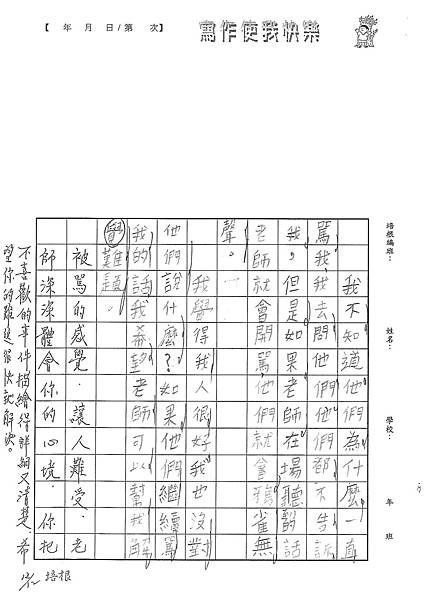 【 年 月 日/第 次】
寫作使我快樂
培根編班：
姓名：
學校：
年 班
我不知道他們為什麼一直
罵我，我去問他們他們都不告訴
我，但是如果老師在場聽話
老師就會開罵他們就會鴉雀無
聲。
我覺得我人很好我也沒對
他們說什麼？如果他們繼續罵
我的話我希望老師可以幫我解
覺難題。
被罵的感覺．讓人難受．老
師深深體會你的心境．你把
不喜歡的事件描繪得詳細又清楚．希
望你的難題很快就解決。
培根